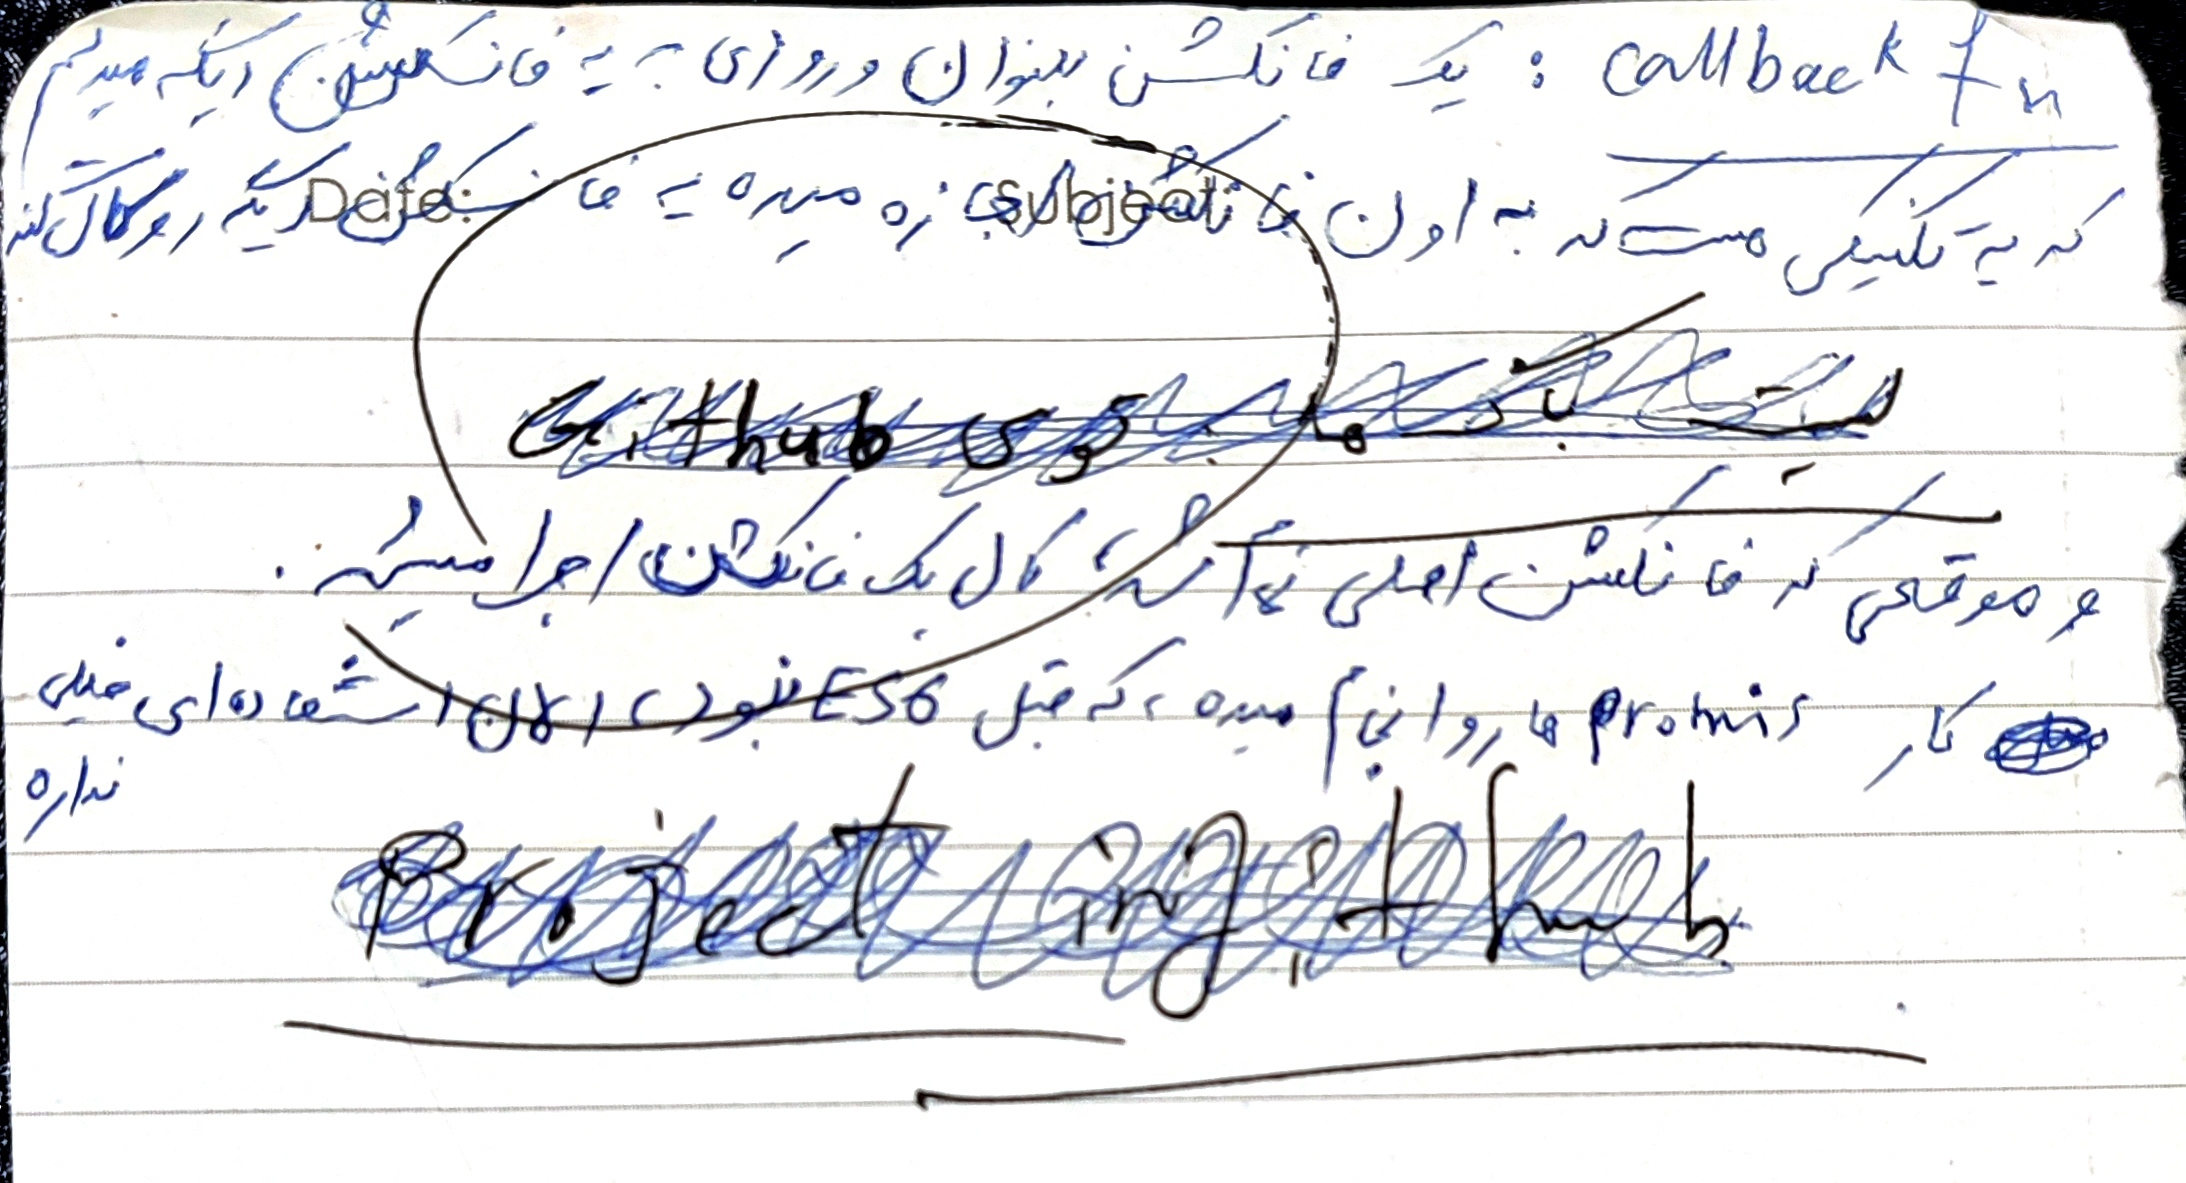 callback fn : یک فانکشن بعنوان ورودی به یه فانکشن دیگه میدیم
Date: Subject:
که یه تکنیکی هست که به اون فانکشن اجازه میده یه فانکشن دیگه رو کال کنه
لیست باگ ها توی Github
و موقعی که فانکشن اصلی کال بک فانکشن اجرا میشه .
کار promis ها رو انجام میده ، که قبل ES6 بود، الان استفاده‌ای خیلی
نداره
Project in github